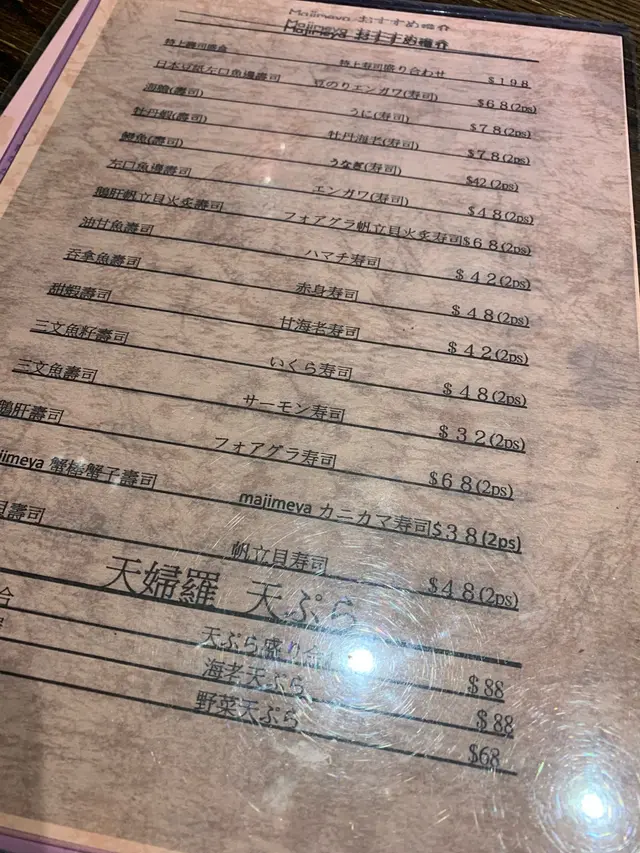 Majimeya おすすめ
特上壽司盛合 特上寿司盛り合わせ $198
日本豆瓜左口魚邊壽司 豆のりエンガワ(寿司) $68(2ps)
海膽(壽司) うに(寿司) $78(2ps)
牡丹蝦(壽司) 牡丹海老(寿司) $78(2ps)
鰻魚(壽司) うなぎ(寿司) $42(2ps)
左口魚邊壽司 エンガワ(寿司) $48(2ps)
鵝肝帆立目火炙壽司 フォアグラ帆立目火炙寿司 $68(2ps)
油甘魚壽司 ハマチ寿司 $42(2ps)
吞拿魚壽司 赤身寿司 $48(2ps)
甜蝦壽司 甘海老寿司 $42(2ps)
三文魚籽壽司 いくら寿司 $48(2ps)
三文魚壽司 サーモン寿司 $32(2ps)
鵝肝壽司 フォアグラ寿司 $68(2ps)
jimeya 蟹棒蟹子壽司 majimeya カニカマ寿司 $38(2ps)
壽司 帆立目寿司 $48(2ps)
天婦羅 天ぷら
合 天ぷら盛り合 $88
海老天ぷら $88
野菜天ぷら $68